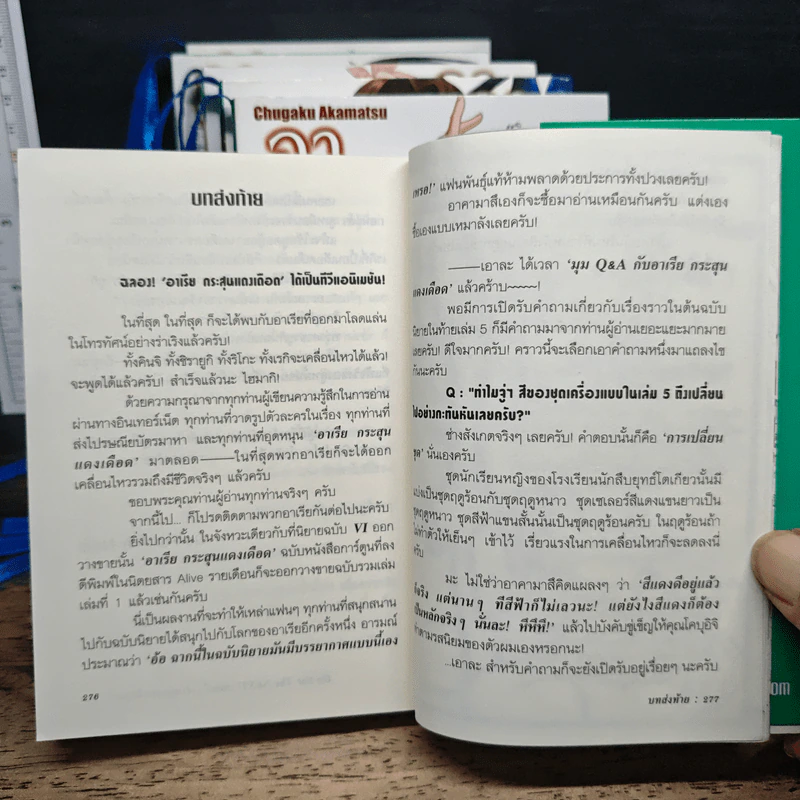 Chugaku Akamatsu
บทส่งท้าย
ฉลอง! 'อาเรีย กระสุนแดงเดือด' ได้เป็นทีวีแอนิเมชัน!
ในที่สุด ในที่สุด ก็จะได้พบกับอาเรียที่ออกมาโลดแล่น
ในโทรทัศน์อย่างร่าเริงแล้วครับ!
ทั้งคินจิ ทั้งชิรายูกิ ทั้งริโกะ ทั้งเรกิจะเคลื่อนไหวได้แล้ว!
จะพูดได้แล้วครับ! สำเร็จแล้วนะ ไฮมากิ!
ด้วยความกรุณาจากทุกท่านผู้เขียนความรู้สึกในการอ่าน
ผ่านทางอินเทอร์เน็ต ทุกท่านที่วาดรูปตัวละครในเรื่อง ทุกท่านที่
ส่งไปรษณียบัตรมาหา และทุกท่านที่อุดหนุน 'อาเรีย กระสุน
แดงเดือด' มาตลอด——ในที่สุดพวกอาเรียก็จะได้ออก
เคลื่อนไหวรวมถึงมีชีวิตจริงๆ แล้วครับ
ขอบพระคุณท่านผู้อ่านทุกท่านจริงๆ ครับ
จากนี้ไป... ก็โปรดติดตามพวกอาเรียกันต่อไปนะครับ
ยิ่งไปกว่านั้น ในจังหวะเดียวกับที่นิยายฉบับ VI ออก
วางขายนั้น 'อาเรีย กระสุนแดงเดือด' ฉบับหนังสือการ์ตูนที่ลง
ตีพิมพ์ในนิตยสาร Alive รายเดือนก็จะออกวางขายฉบับรวมเล่ม
เล่มที่ 1 แล้วเช่นกันครับ
นี่เป็นผลงานที่จะทำให้เหล่าแฟนๆ ทุกท่านที่สนุกสนาน
ไปกับฉบับนิยายได้สนุกไปกับโลกของอาเรียอีกครั้งหนึ่ง อารมณ์
ประมาณว่า 'อ้อ ฉากนี้ในฉบับนิยายมันมีบรรยากาศแบบนี้เอง
276
เหรอ!' แฟนพันธุ์แท้ห้ามพลาดด้วยประการทั้งปวงเลยครับ!
อาคามาสึเองก็จะซื้อมาอ่านเหมือนกันครับ แต่งเอง
ซื้อเองแบบเหมาลังเลยครับ!
——เอาละ ได้เวลา 'มุม Q&A กับอาเรีย กระสุน
แดงเดือด' แล้วคร้าบ~~~~!
พอมีการเปิดรับคำถามเกี่ยวกับเรื่องราวในต้นฉบับ
นิยายในท้ายเล่ม 5 ก็มีคำถามมาจากท่านผู้อ่านเยอะแยะมากมาย
เลยครับ! ดีใจมากครับ! คราวนี้จะเลือกเอาคำถามหนึ่งมาแถลงไข
กันนะครับ
Q : "ทำไมจู่ๆ สีของชุดเครื่องแบบในเล่ม 5 ถึงเปลี่ยน
ไปอย่างกะทันหันเลยครับ?"
ช่างสังเกตจริงๆ เลยครับ! คำตอบนั้นก็คือ 'การเปลี่ยน
ชุด' นั่นเองครับ
ชุดนักเรียนหญิงของโรงเรียนนักสืบยุทธ์โตเกียวนั้นมี
แบ่งเป็นชุดฤดูร้อนกับชุดฤดูหนาว ชุดเซเลอร์สีแดงแขนยาวเป็น
ชุดฤดูหนาว ชุดสีฟ้าแขนสั้นนั้นเป็นชุดฤดูร้อนครับ ในฤดูร้อนถ้า
ไม่ทำตัวให้เย็นๆ เข้าไว้ เรี่ยวแรงในการเคลื่อนไหวก็จะลดลงนี่
ครับ
มะ ไม่ใช่ว่าอาคามาสึคิดแผลงๆ ว่า 'สีแดงดีอยู่แล้ว
ก็จริง แต่นานๆ ทีสีฟ้าก็ไม่เลวนะ! แต่ยังไงสีแดงก็ต้อง
เป็นหลักจริงๆ นั่นละ! หึหึหึ!' แล้วไปบังคับขู่เข็ญให้คุณโคบุอิจิ
ทำตามรสนิยมของตัวผมเองหรอกนะ!
...เอาละ สำหรับคำถามก็จะยังเปิดรับอยู่เรื่อยๆ นะครับ
บทส่งท้าย : 277